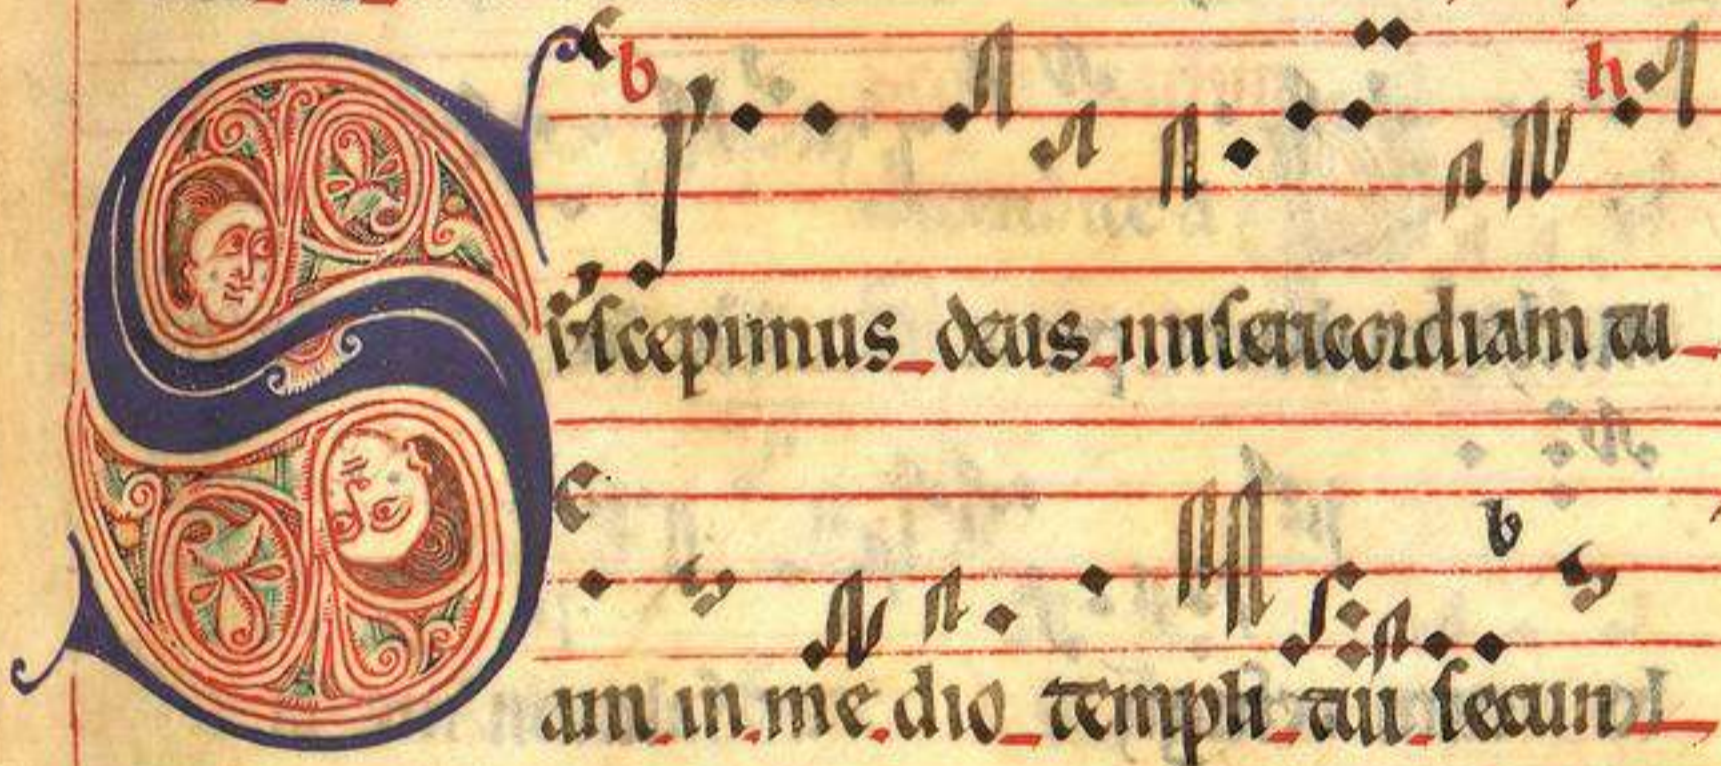 Suscepimus deus misericordiam tu
am in me dio templi tui secun